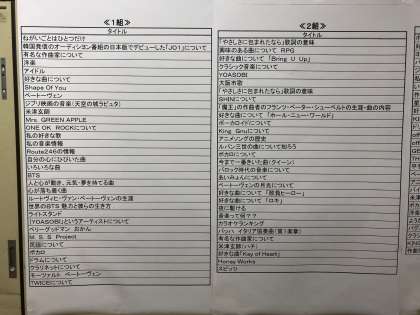 ≪1組≫
タイトル
ねがいごとはひとつだけ
韓国発信のオーディション番組の日本版でデビューした「JO1」について
有名な作曲家について
洋楽
アイドル
好きな曲について
Shape Of You
ベートーヴェン
ジブリ映画の音楽(天空の城ラピュタ)
米津玄師
Mrs. GREEN APPLE
ONE OK ROCKについて
私の好きな歌
私の音楽情報
Route246の情報
自分の心にひびいた曲
いろいろな曲
BTS
人と心が動き、元気・夢を持てる曲
心が落ち着く曲
ルードヴィヒ・ヴァン・ベートーヴェンの生涯
世界のBTS 魅力と彼らの生き方
ライトスタンド
「YOASOBI」というアーティストについて
ベリーグッドマン おかん
M.S.S Project
民謡について
ボカロ
ドラムについて
クラリネットについて
モーツァルト ベートーヴェン
TWICEについて
≪2組≫
タイトル
「やさしさに包まれたなら」歌詞の意味
興味のある曲について RPG
好きな曲について「Bring U Up」
クラシック音楽について
YOASOBI
大阪市歌
「やさしさに包まれたなら」歌詞の意味
SHINについて
「魔王」の作曲者のフランツ・ペーター・シューベルトの生涯・曲の内容
好きな曲について「ホール・ニュー・ワールド」
ボーカロイドについて
King Gnuについて
アニメソングの歴史
ルパン三世の曲について知ろう
ボカロについて
今まで一番きいた曲(クイーン)
バロック時代の音楽について
あいみょんについて
ベートーヴェンの月光について
好きな曲について「脱獄ヒーロー」
好きな曲について「ロキ」
夜に駆ける
音楽って何??
カラオケランキング
バッハ イタリア協奏曲(第1楽章)
有名な作曲家について
米津玄師(ハチ)
好きな曲「Key of Heart」
Honey Works
スピッツ